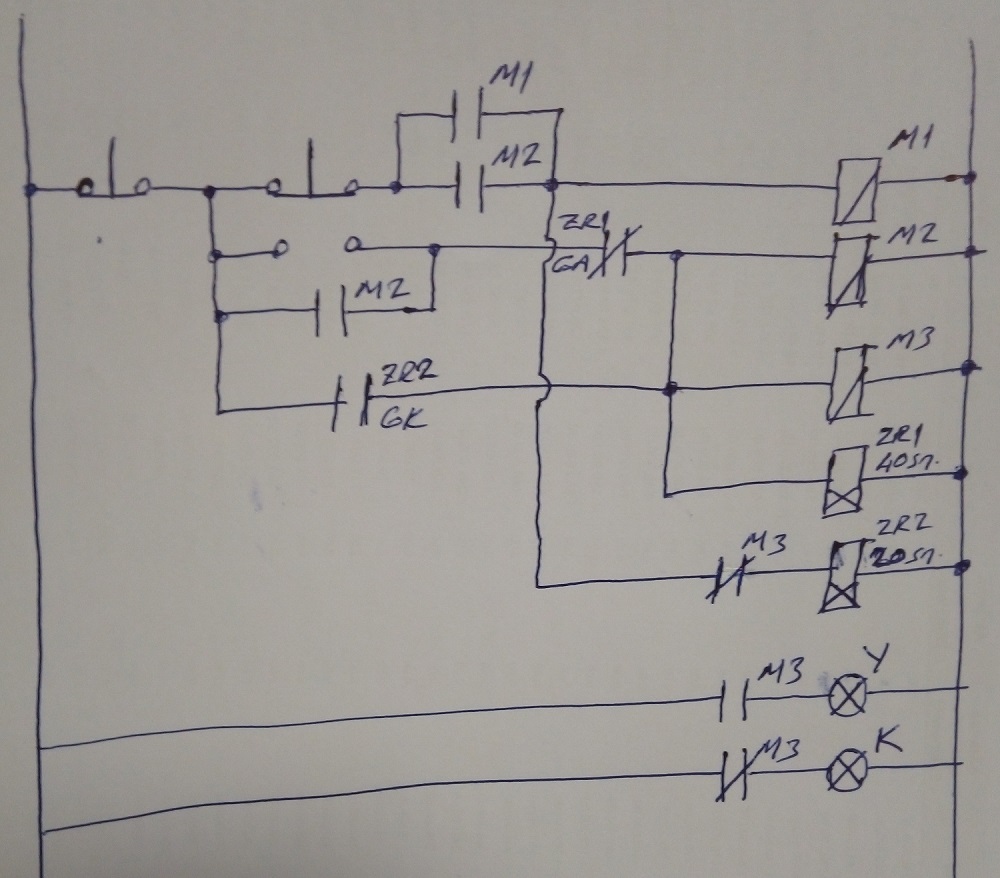 M1
M2
M1
ZR1
GA
M2
M2
M3
ZR2
GK
ZR1
40sn.
M3
ZR2
20sn.
M3
Y
M3
K